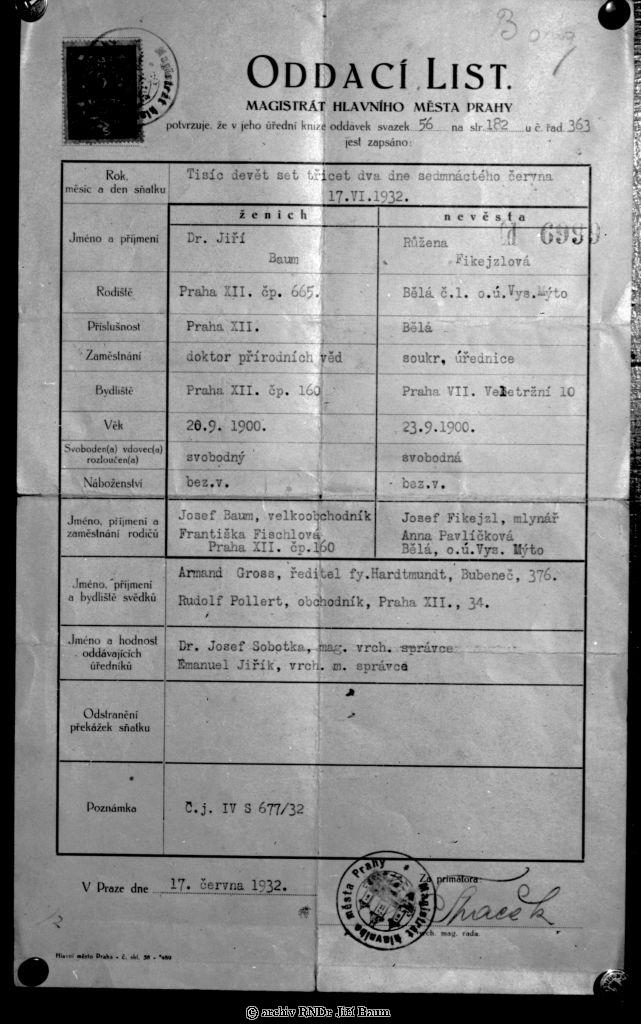 ODDACÍ LIST.
MAGISTRÁT HLAVNÍHO MĚSTA PRAHY
potvrzuje, že v jeho úřední knize oddavek svazek 56 na str. 182 u č. řad. 363
jest zapsáno:
Rok, měsíc a den sňatku
Tisíc devět set třicet dva dne sedmnáctého června
17.VI.1932.
ženich nevěsta
6999
Jméno a příjmení
Dr. Jiří Baum
Růžena Fikejzlová
Rodiště Praha XII. čp. 665. Bělá č.1. o.ú.Vys.Mýto
Příslušnost Praha XII. Bělá
Zaměstnání doktor přírodních věd soukr. úřednice
Bydliště Praha XII. čp. 160 Praha VII. Veletržní 10
Věk 20.9. 1900. 23.9.1900.
Svoboden(a) vdovec(a) rozloučen(a) svobodný svobodná
Náboženství bez.v. bez.v.
Jméno, příjmení a zaměstnání rodičů
Josef Baum, velkoobchodník
Františka Fischlová
Praha XII. čp.160
Josef Fikejzl, mlynář
Anna Pavlíčková
Bělá, o.ú.Vys. Mýto
Jméno, příjmení a bydliště svědků
Armand Gross, ředitel fy.Hardtmundt, Bubeneč, 376.
Rudolf Pollert, obchodník, Praha XII., 34.
Jméno a hodnost oddávajících úředníků
Dr. Josef Sobotka, mag. vrch. správce
Emanuel Jiřík, vrch. m. správce
Odstranění překážek sňatku
Poznámka Č.j. IV S 677/32
V Praze dne 17. června 1932.
Za primátora:
vrch. mag. rada.
Magistrát hlavního města Prahy
Hlavní město Praha - č. skl. 38 -
© archiv RNDr Jiří Baum